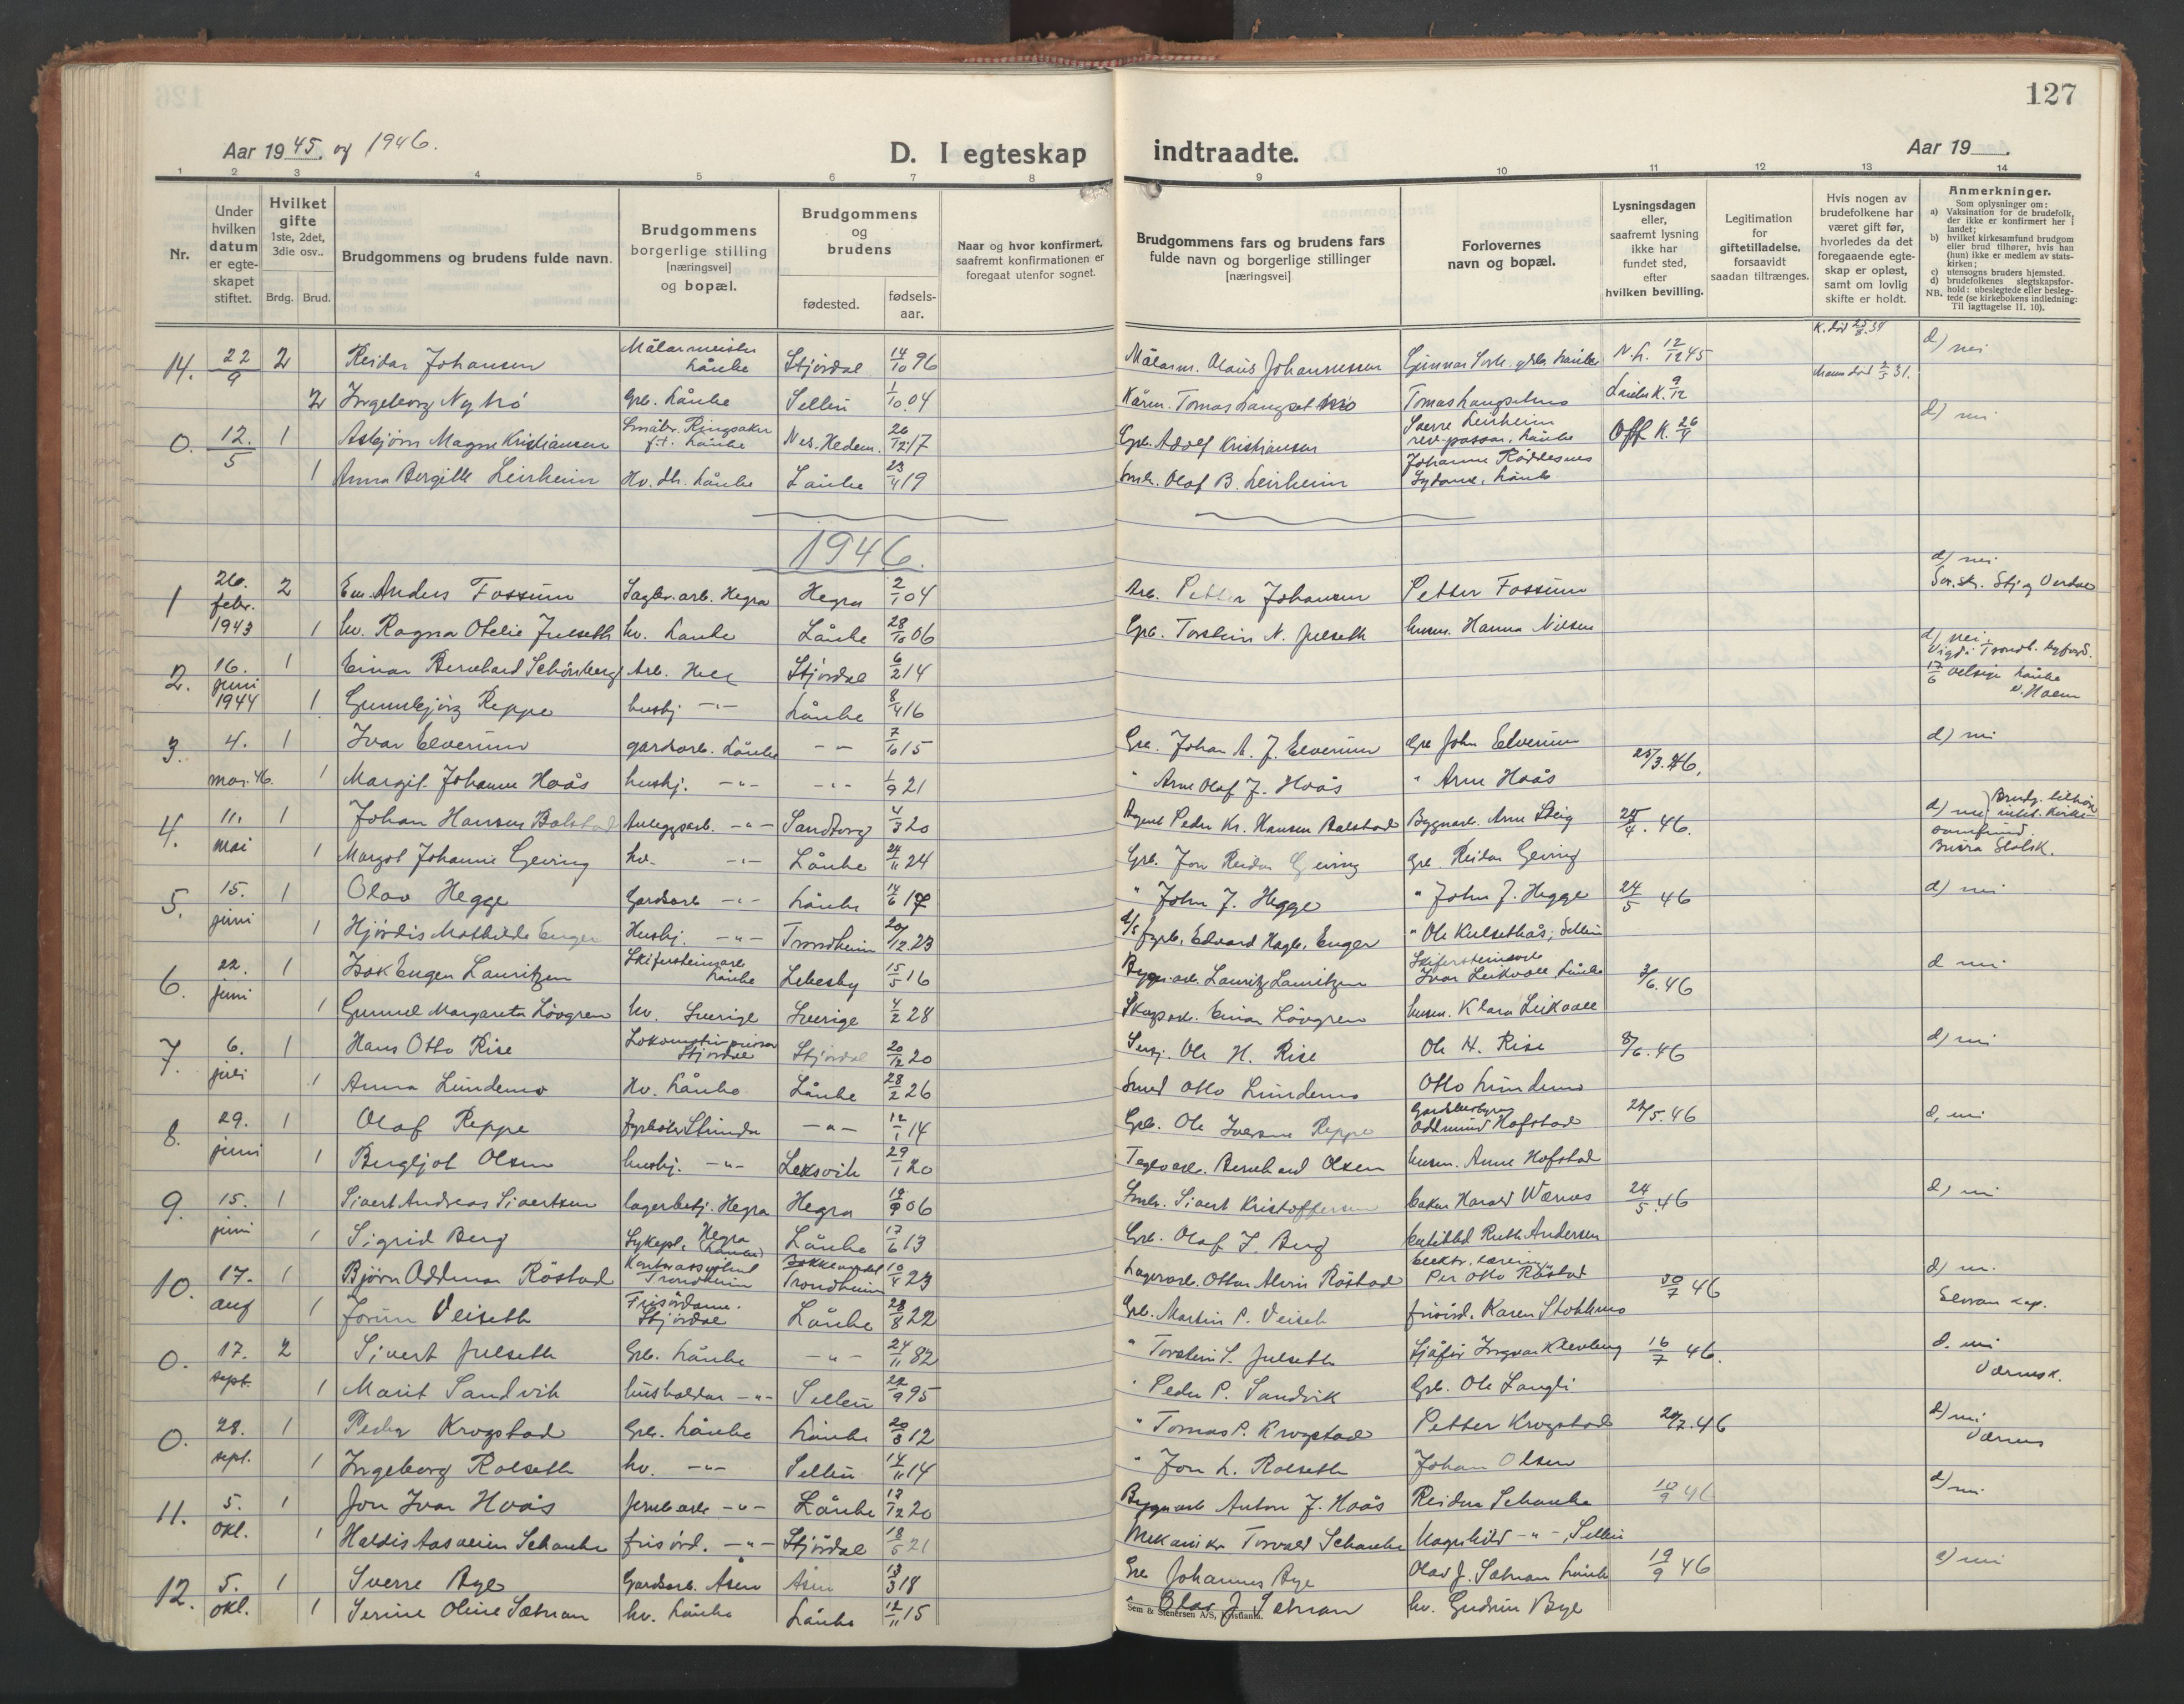 127
Aar 1945. og 1946.
D. I egteskap indtraadte.
Aar 19 .
1 2 3 4 5 6 7 8 9 10 11 12 13 14
Nr.
Under hvilken datum er egte-skapet stiftet.
Hvilket gifte 1ste, 2det, 3die osv..
Brdg. Brud.
Brudgommens og brudens fulde navn.
Brudgommens borgerlige stilling [næringsvei] og bopæl.
Brudgommens og brudens
fødested.
fødsels-aar.
Naar og hvor konfirmert, saafremt konfirmationen er foregaat utenfor sognet.
Brudgommens fars og brudens fars fulde navn og borgerlige stillinger [næringsvei]
Forlovernes navn og bopæl.
Lysningsdagen eller, saafremt lysning ikke har fundet sted, efter hvilken bevilling.
Legitimation for giftetilladelse, forsaavidt saadan tiltrænges.
Hvis nogen av brudefolkene har været gift før, hvorledes da det foregaaende egte-skap er opløst, samt om lovlig skifte er holdt.
Anmerkninger.
Som oplysninger om:
a) Vaksination for de brudefolk, der ikke er konfirmert her i landet;
b) hvilket kirkesamfund brudgom eller brud tilhører, hvis han (hun) ikke er medlem av stats-kirken;
c) utensogns bruders hjemsted.
d) brudefolkenes slegtskapsfor-hold: ubeslegtede eller besleg-tede (se kirkebokens indledning: Til Iagttagelse II. 10).
NB.
14. 22/9 2 Reidar Johansen Målarmeister Lånke Stjørdal 14/10 96 Målarm. Olaus Johannessen N.L. 12/12 45 K. død 25/8.34 d) nei
2 Ingeborg Nymo Grb. Lånke Selbu 1/10.04 Tomas Langset Tomas Langsetmo K. 9/12 Mann død 2/5 31.
0. 12./5 1 Asbjørn Magne Kristiansen Småbr. Ringsaker f.t. Lånke Nes. Hedem. 26/12 17 Grb. Adolf Kristiansen Sverre Leirheim Lånke Off K. 26/4 d) nei
1 Anna Bergitte Leirheim Hv. dt. Lånke Lånke 23/4 19 Smbr. Olaf B. Leirheim Johanne Røddesnes Sydame, Lånke
1946.
1 26. febr. 1943 2 Em. Anders Fossum Sagbr.arb. Hegra Hegra 2/1 04 Arb. Petter Johansen Petter Fossum d) nei
1 hv. Ragna Otelie Julseth hv. Lånke Lånke 28/10 06 Grb. Torstein N. Julseth husm. Hanna Nilsen
2. 16. juni 1944 1 Einar Bernhard Schönberg Arb. Hell Stjørdal 6/2 14 d) nei. Vigd i Trondh. byfogd.
1 Gunnbjørg Reppe hushj -"- Lånke 8/4 16 17/6 velsign. Lånke
3. 4. mai 46. 1 Ivar Elverum gardsarb. Lånke -"- 7/10 15 Gre. Johan A. J. Elverum Gre John Elverum 25/3.46. d) nei
1 Margit Johanne Hoås hushj. -"- -"- 1/9 21 " Arne Olaf J. Hoås " Arne Hoås
4. 11. mai 1 Johan Hansen Balstad Anleggsarb. -"- Sandtorg 4/3 20 Agent Peder Kr. Hansen Balstad Bygnarb. Arne Steig 25/4.46. d) nei
1 Margot Johanne Geving hv. -"- Lånke 24/11 24 Grb. Jon Reidar Geving Gre Reidar Geving
5. 15. juni 1 Olav Hegge Gardsarb -"- Lånke 14/6 17 " John J. Hegge " John J. Hegge 24/5 46 d) nei
1 Hjørdis Mathilde Enger Hushj. -"- Trondheim 20/12.23 d/s fyrb. Edvard Hagb. Enger " Ole Kulsethås; Selbu
6. 22. juni 1 Isak Eugen Lauritzen Skifersteinsarb Lånke Lebesby 15/5 16 Byggn.arb. Lauritz Lauritzen Skifersteinsarb Ivar Leikvoll Lånke 3/6.46 d nei
1 Gunnel Margareta Lövgren hv. Sverige Sverige 4/2 28 Skogsarb. Einar Lövgren husm. Klara Leikvoll
7. 6. juli 1 Hans Otto Rise Lokomotivpusser Stjørdal Stjørdal 20/12 20 Ole H. Rise Ole H. Rise 8/6.46 d) nei
1 Anna Lundemo Hv. Lånke Lånke 28/2 26 Smed Otto Lundemo Otto Lundemo
8. 29. juni 1 Olaf Reppe fyrbøter Strinda -"- 12/1 14 Grb. Ole Iversen Reppe Gardsbestyrer Oddmund Hofstad 22/5.46 d, nei
1 Bergljot Olsen hushj. -"- Leksvik 29/1 20 Teglv.arb. Bernhard Olsen husm. Anne Hofstad
9. 15. juni 1 Sivert Andreas Sivertsen lagerbetj. Hegra Hegra 19/9 06 Smbr. Sivert Kristoffersen baker Harald Wærnes 24/5.46 d) nei
1 Sigrid Berg Sykepl. Hegra Lånke 17/6 13 Grb. Olaf J. Berg Ruth Andersen
10. 17. aug 1 Bjørn Oddmar Röstad Kontorassistent Trondheim Trondheim 10/4 23 Lagerarb. Ottar Alvin Röstad Per Otto Röstad 30/7 46 d) n.
1 Jorun Veiseth Frisördame. Stjørdal Lånke 28/8 22 Grb. Martin P. Veiseth frisörd. Karen Stokkmo Elvran kap.
0. 17. sept. 2 Sivert Julseth Grb. Lånke -"- 24/11 82 " Torstein S. Julseth Sjåfør Ingvar Klevberg 16/7 46. d. nei
1 Marit Sandvik husholder -"- Selbu 22/9 95 " Peder P. Sandvik Grb. Ole Langli Værnes k.
0. 28. sept. 1 Peder Krogstad Grb. Lånke Lånke 20/3 12 " Tomas P. Krogstad Petter Krogstad 20/7.46 d) nei Værnes
1 Ingeborg Rolseth hv. -"- Selbu 14/11 14 " Jon L. Rolseth Johan Olsen
11. 5. okt. 1 Jon Ivar Hoås jernb.arb -"- Lånke 13/12 20 Byggn.arb Anton J. Hoås Reidun Schanke 10/9 46 d) nei
1 Haldis Aasveien Schanke frisörd. -"- Stjørdal 18/5 21 Mekaniker Torvald Schanke Magnhild -"-, Selbu
12. 5. okt. 1 Sverre Bye Gardsarb. Åsen Åsen 13/3 18 Gre Johannes Bye Olav J. Sætnan Lånke 19/9 46 d) nei
1 Serine Oline Sætnan hv. Lånke Lånke 12/11 15 " Olav J. Sætnan hv. Gudrun Bye
Sem & Stenersen A/S, Kristiania.